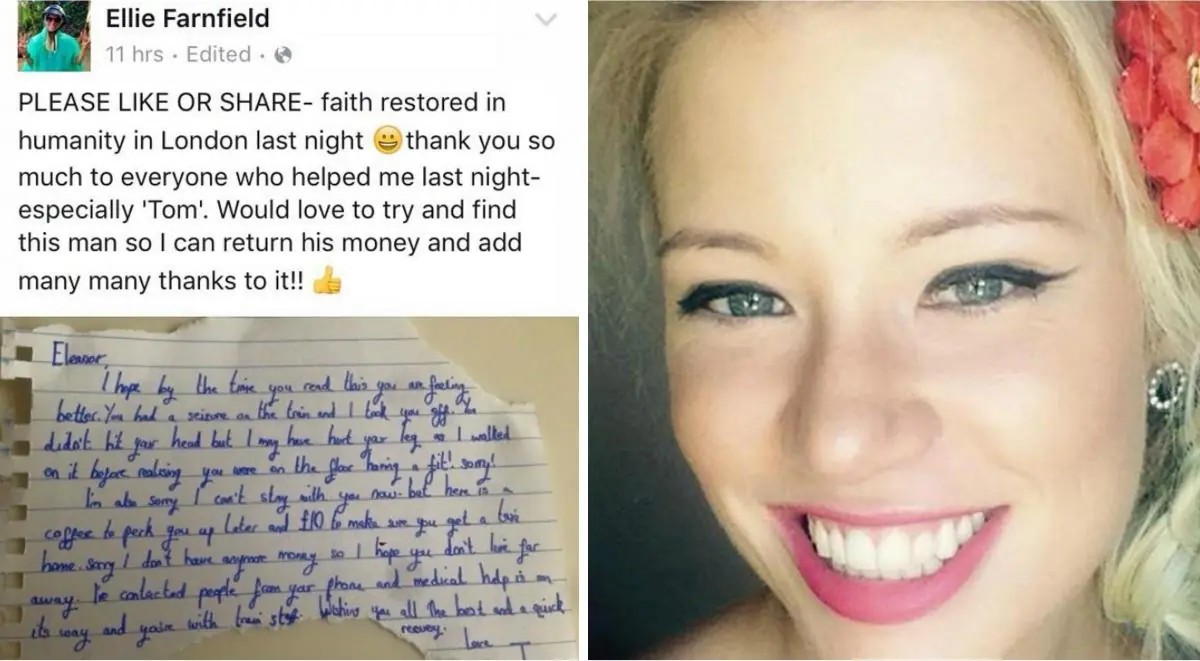 Ellie Farnfield
11 hrs · Edited ·
PLEASE LIKE OR SHARE- faith restored in
humanity in London last night 😀 thank you so
much to everyone who helped me last night-
especially 'Tom'. Would love to try and find
this man so I can return his money and add
many many thanks to it!! 👍
Eleanor,
I hope by the time you read this you are feeling
better. You had a seizure on the train and I took you off. You
didn't hit your head but I may have hurt your leg as I walked
on it before realising you were on the floor having a fit! sorry!
I'm also sorry I can't stay with you now- but here is a
coffee to perk you up later and £10 to make sure you get a
home. Sorry I don't have anymore money so I hope you don't live far
away. I've contacted people from your phone and medical help is on
its way and you're with train staff. Wishing you all the best and a quick
recovery.
Love T